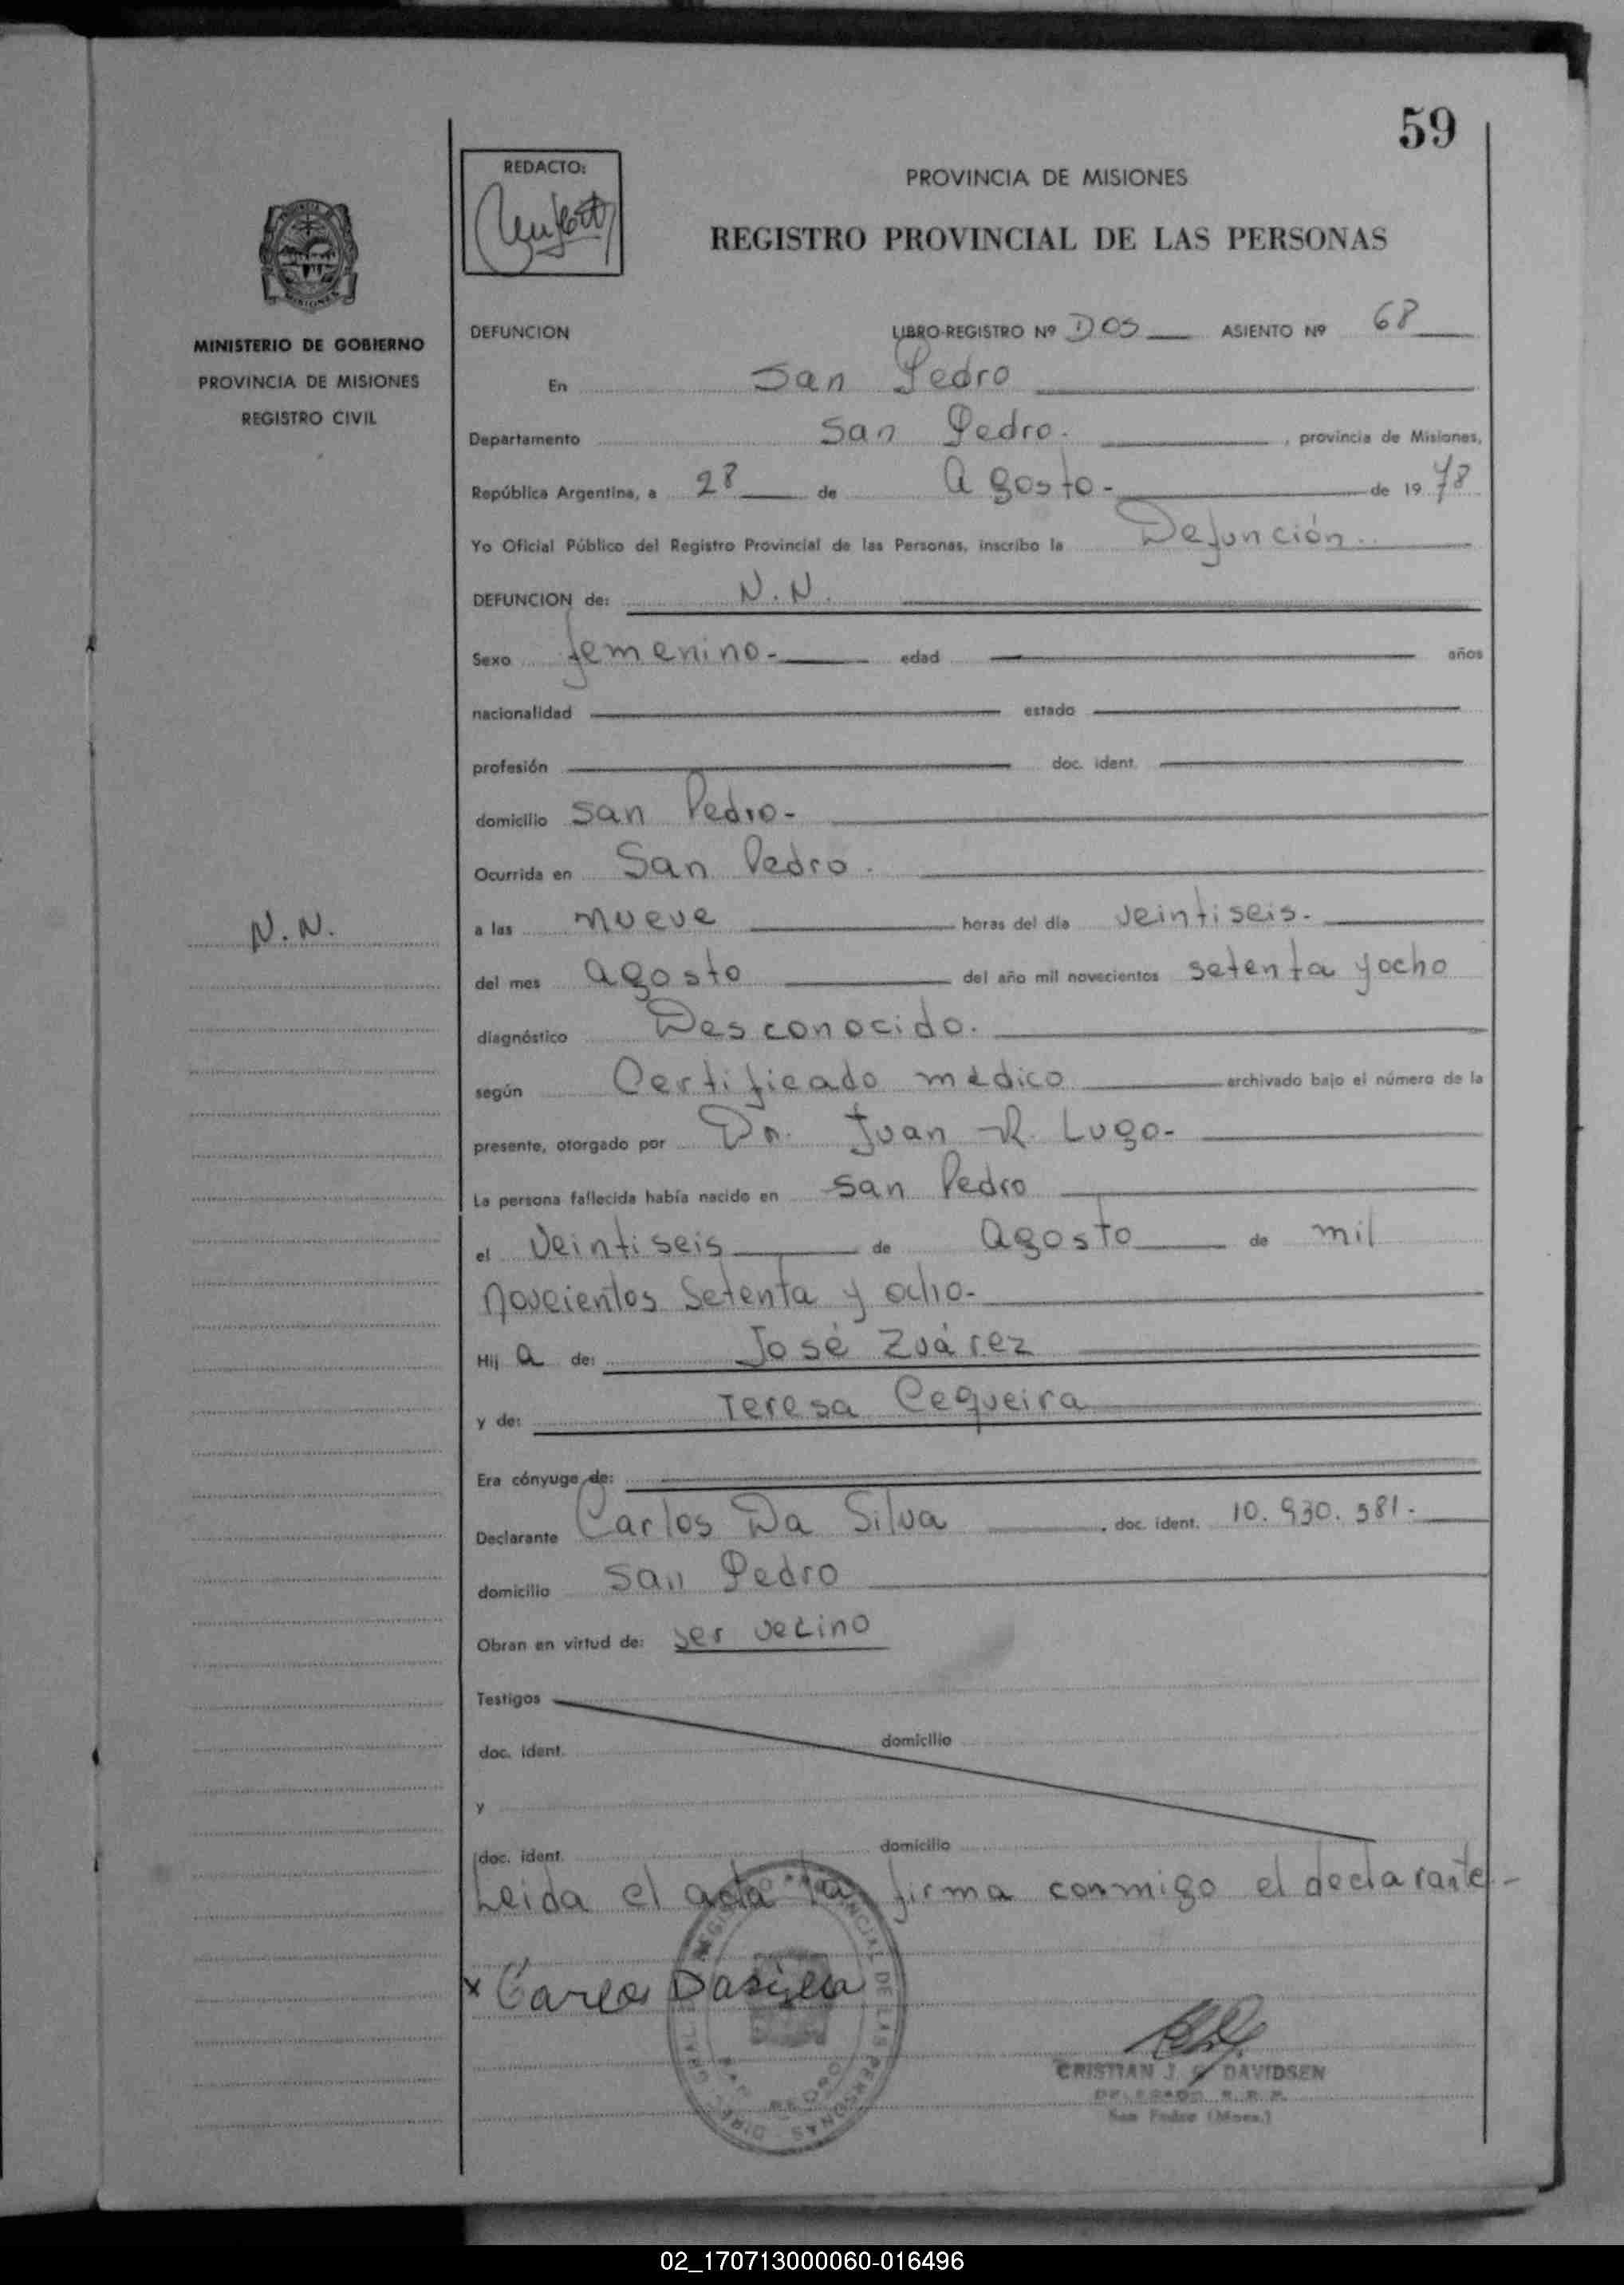 59
REDACTO:
PROVINCIA DE MISIONES
REGISTRO PROVINCIAL DE LAS PERSONAS
MINISTERIO DE GOBIERNO
PROVINCIA DE MISIONES
REGISTRO CIVIL
DEFUNCION LIBRO-REGISTRO Nº DOS ASIENTO Nº 68
En San Pedro
Departamento San Pedro. , provincia de Misiones,
República Argentina, a 28 de Agosto - de 19 78
Yo Oficial Público del Registro Provincial de las Personas, inscribo la Defunción.
DEFUNCION de: N.N.
Sexo femenino- edad años
nacionalidad estado
profesión doc. ident.
domicilio San Pedro-
Ocurrida en San Pedro.
N.N.
a las nueve horas del día veintiseis.
del mes agosto del año mil novecientos setenta y ocho
diagnóstico Desconocido.
según Certificado médico archivado bajo el número de la
presente, otorgado por Dr. Juan R. Lugo-
La persona fallecida había nacido en San Pedro
el Veintiseis de agosto de mil
novecientos Setenta y ocho-
Hij a de: José Zuárez
y de: Teresa Cequeira
Era cónyuge de:
Declarante Carlos Da Silva , doc. ident. 10.930.581.
domicilio San Pedro
Obran en virtud de: ser vecino
Testigos
doc. ident. domicilio
y
doc. ident. domicilio
Leida el acta la firma conmigo el declarante-
x Carlos Dasilva
CRISTIAN J. G. DAVIDSEN
DELEGADO R. R. P.
San Pedro (Mnes.)
02_170713000060-016496